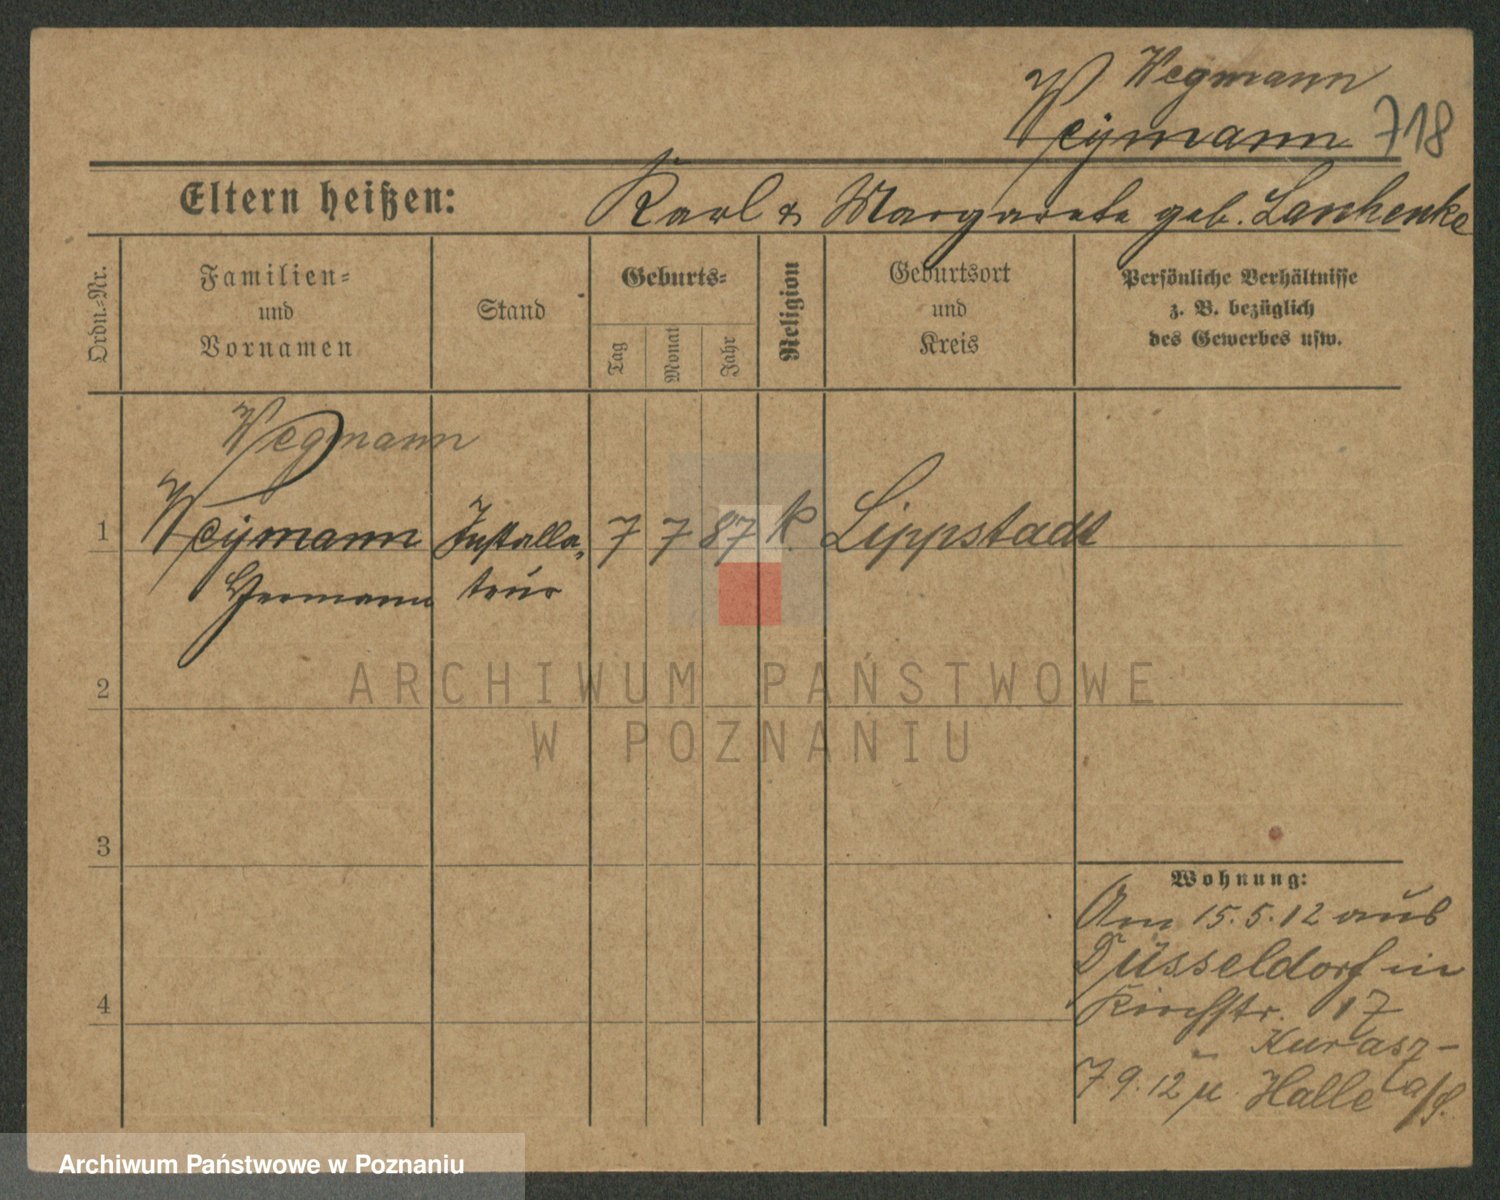 Wegmann
Weÿmann 718
Eltern heißen: Karl & Margarete geb. Lanhenke
Ordn.-Nr.
Familien-
und
Vornamen
Stand
Geburts-
Tag
Monat
Jahr
Religion
Geburtsort
und
Kreis
Persönliche Verhältnisse
z. B. bezüglich
des Gewerbes usw.
Wegmann
1 Weÿmann Installa- 7 7 87 k. Lippstadt
Hermann teur
ARCHIWUM PAŃSTWOWE
W POZNANIU
2
3
4
Wohnung:
Am 15.5.12 aus
Düsseldorf in
Kirchstr. 17
Kurasz-
7 9.12 n Halle a/S.
Archiwum Państwowe w Poznaniu